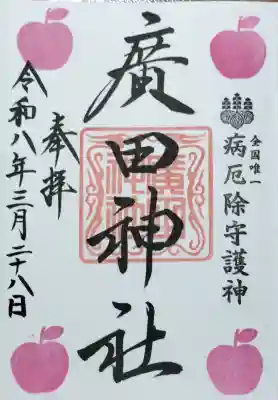 全国唯一
病厄除守護神
廣田神社
奉拝
令和八年三月二十八日